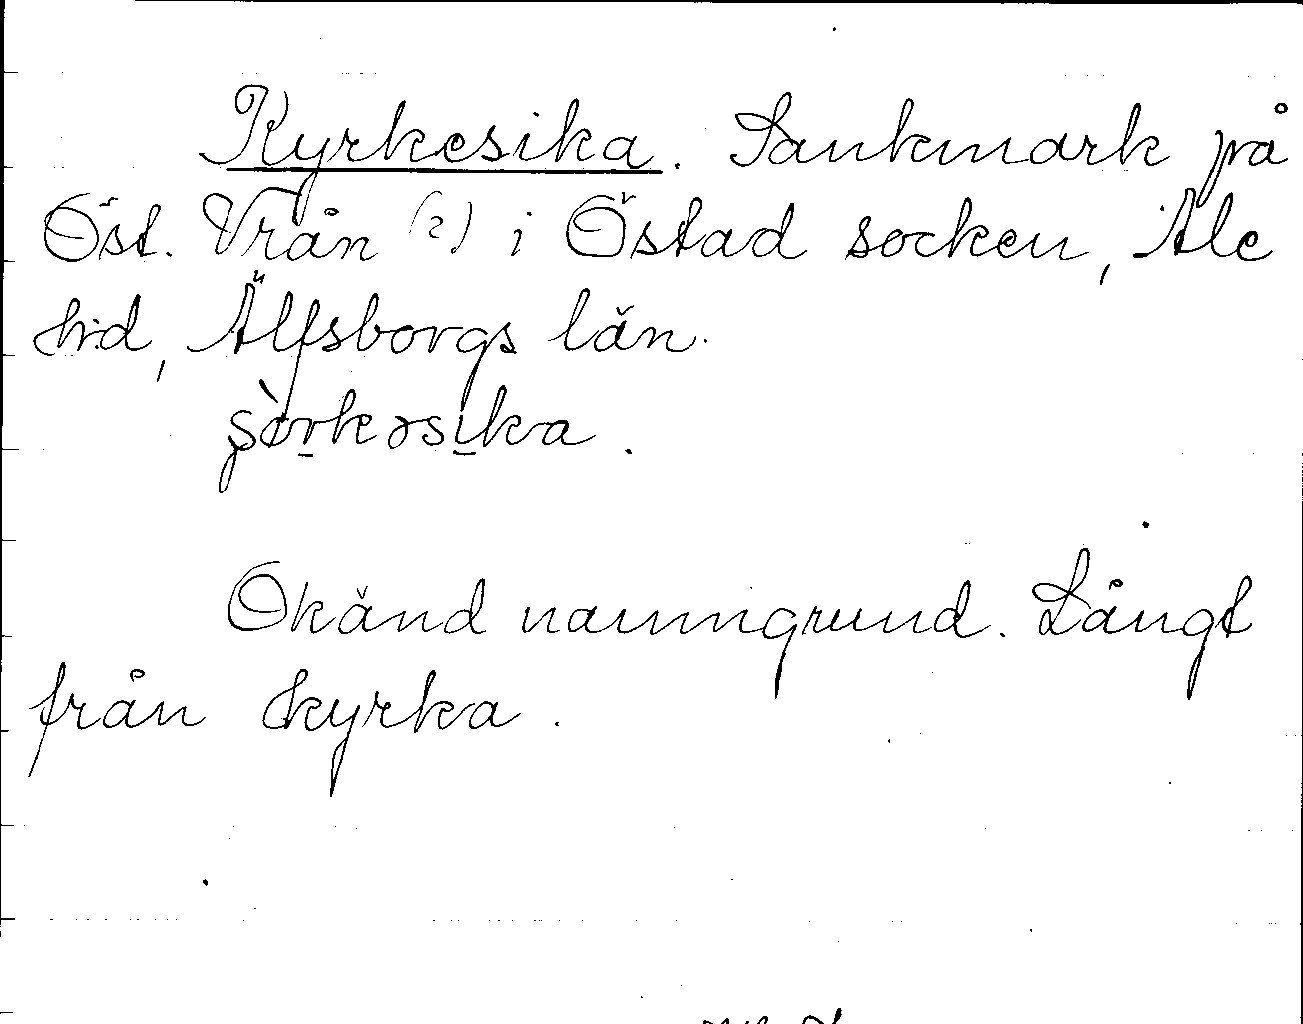 Kyrkesika. Sankmark på
Öst. Vrån (2) i Östad socken, Ale
hd, Älfsborgs län.
Okänd namngrund. Långt
från kyrka.